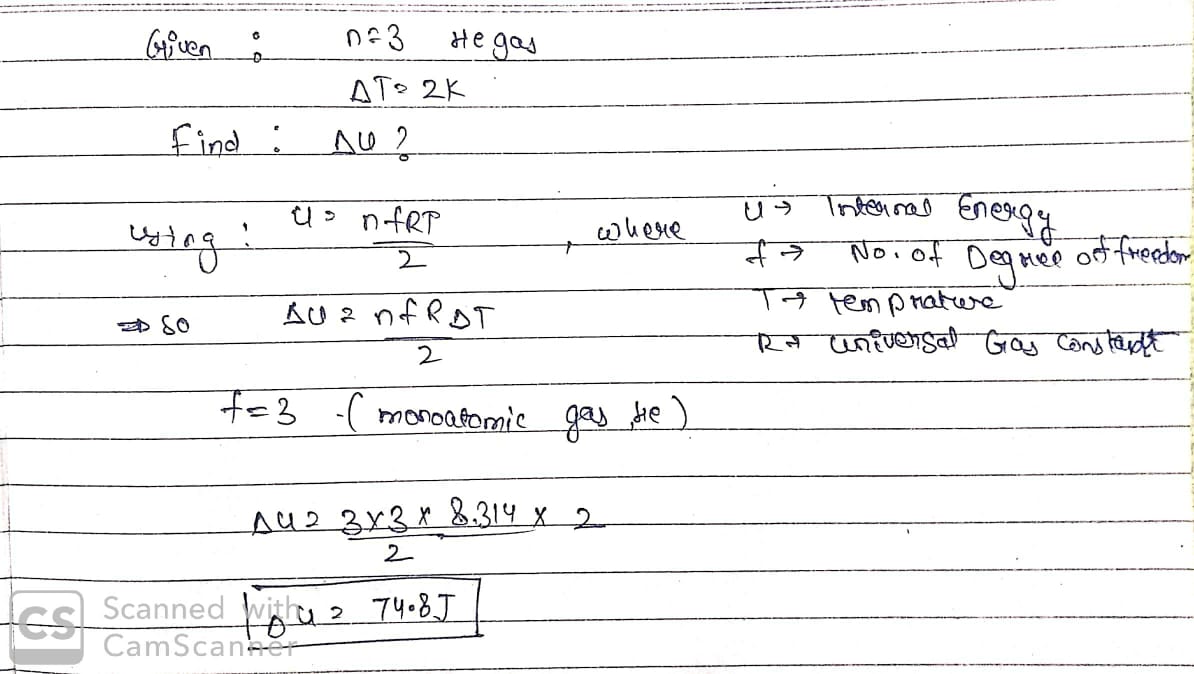 Given : n=3 He gas
ΔT= 2K
Find : ΔU ?
using : U= nfRT/2 , where U → Internal Energy
f → No. of Degree of freedom
⇒ so ΔU = nfRΔT/2
T → temprature
R → universal Gas Constant
f=3 -( monoatomic gas, He )
ΔU = 3×3×8.314×2/2
ΔU = 74.8J
CS Scanned with
CamScanner